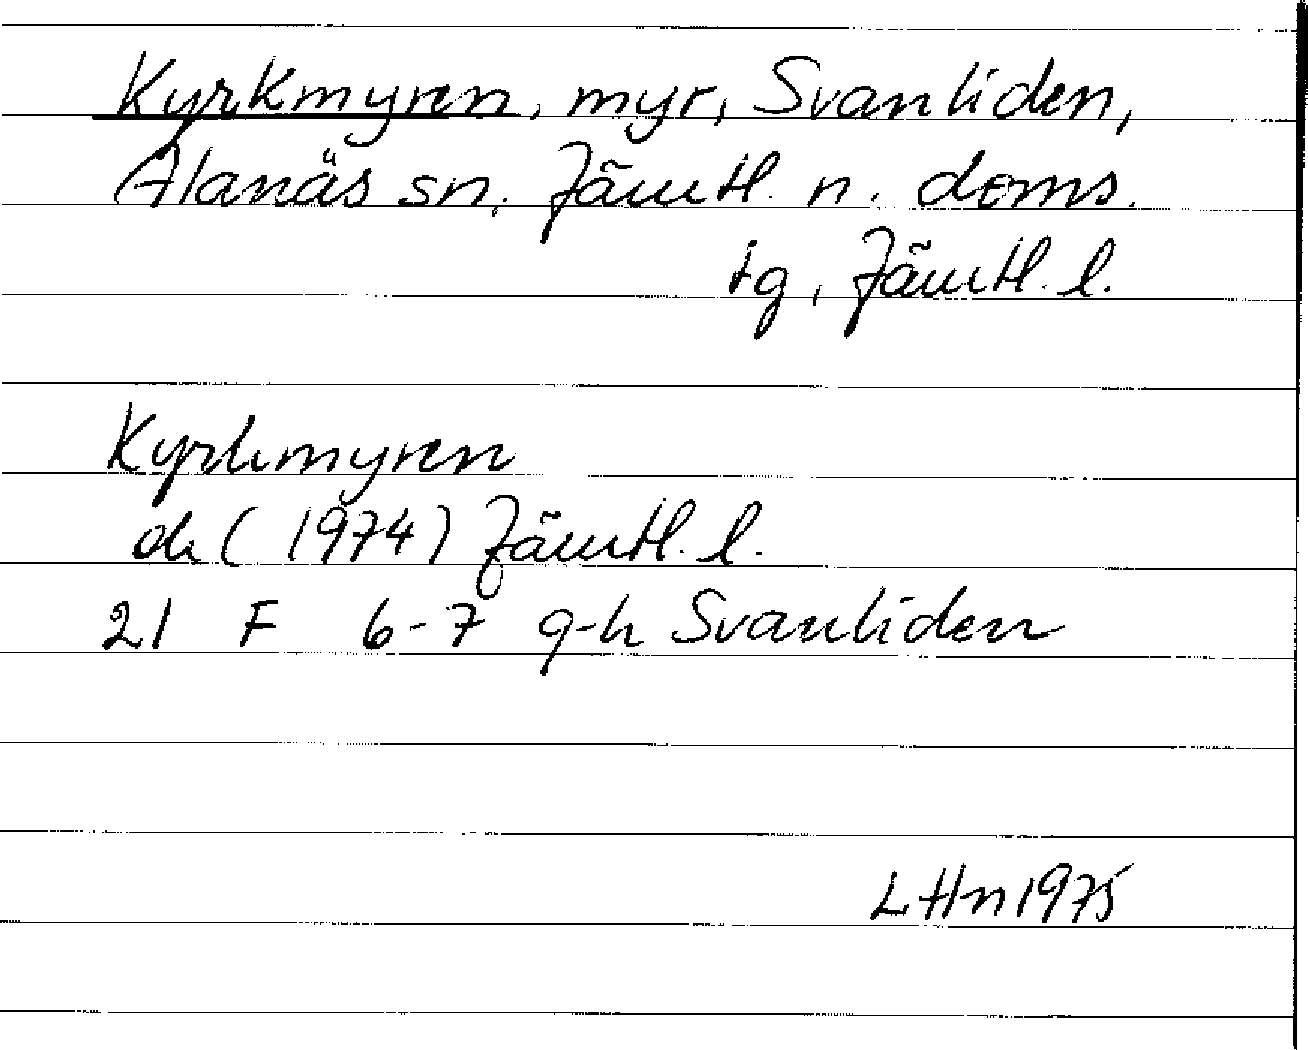 Kyrkmyren, myr, Svanliden,
Alanäs sn, Jämtl. n. doms.
tg, Jämtl. l.
Kyrkmyren
ek (1974) Jämtl. l.
21 F 6-7 g-h Svanliden
LHn 1975